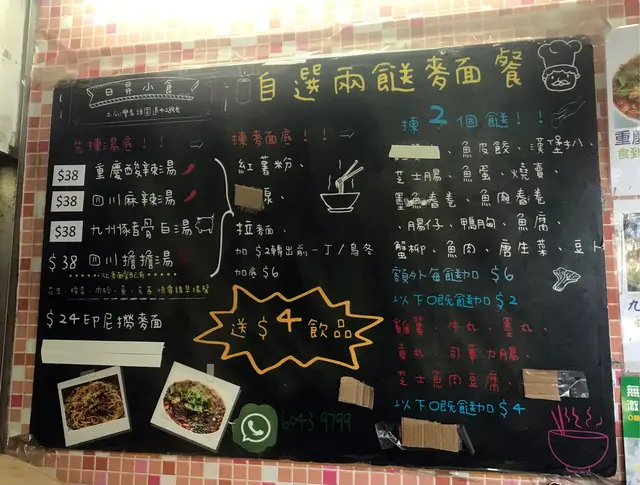 日昇小食
自選兩餸麥面餐
先揀湯底!!
$38 重慶酸辣湯
$38 四川麻辣湯
$38 九州豬骨白湯
$38 四川擔擔湯
$24印尼撈麥面
揀麥面底!!
紅薯粉、
拉麵、
加$2轉出前一丁/烏冬
加底$6
送$4飲品
6043 9799
揀2個餸!!
魚皮餃、漢堡扒、
芝士腸、魚蛋、燒賣、
墨魚卷卷、魚肉春卷
、腸仔、鴨胸、魚腐、
蟹柳、魚肉、唐生菜、豆卜
額外每餸加$6
以下O既餸加$2
雞翼、牛丸、墨丸、
貢丸、司華力腸、
芝士魚肉豆腐、
以下O既餸加$4
重慶
九
無
激